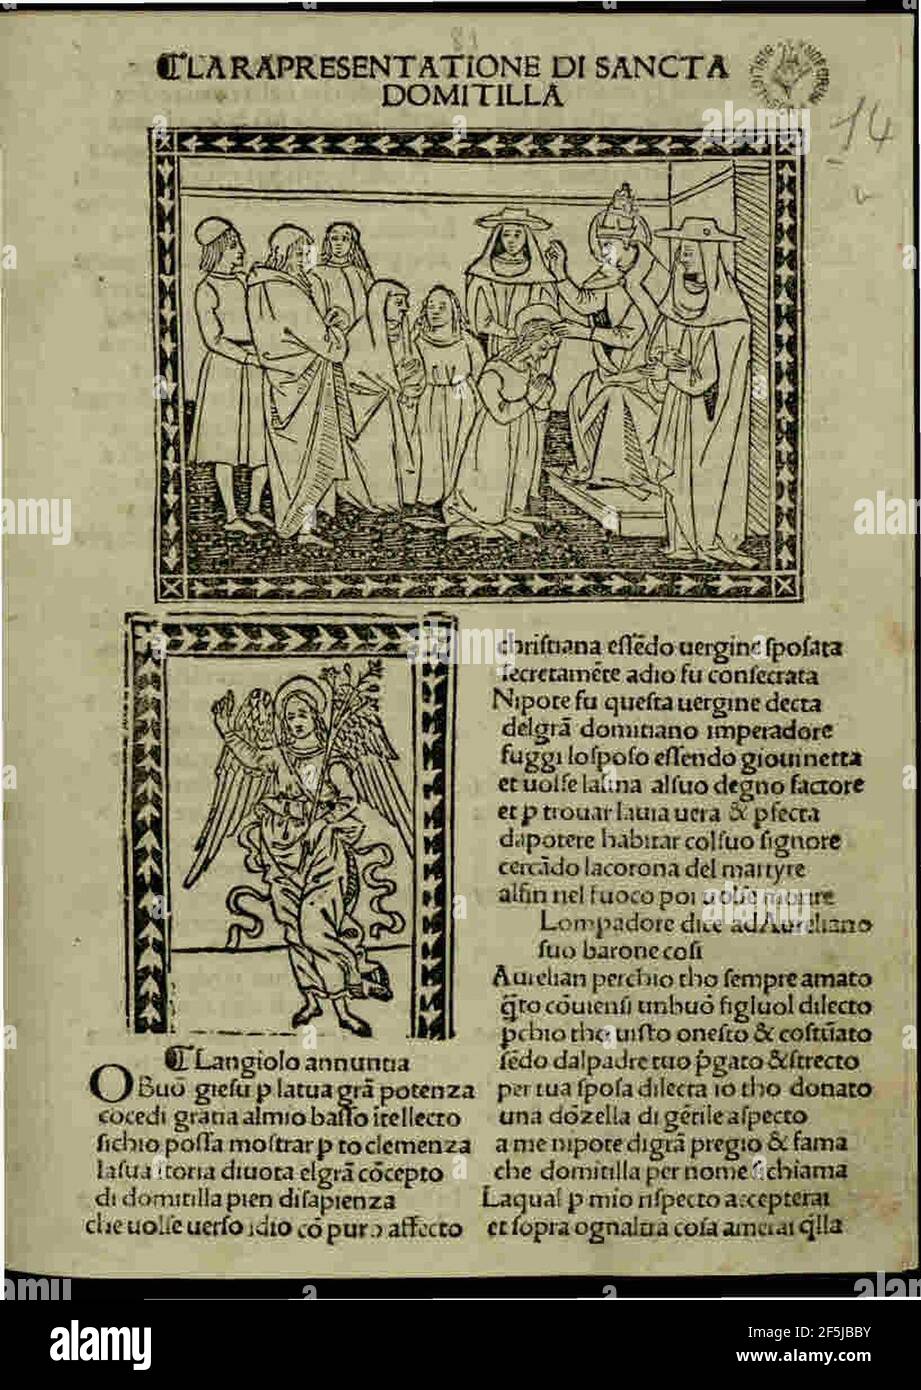 ¶LA RAPRESENTATIONE DI SANCTA
DOMITILLA
14
¶Langiolo annuntia
O Buõ giesu p latua grã potenza
cõcedi gratia almio basso ĩtellecto
sichio possa mostrar p to clemenza
lasua storia diuota el grã cõcepto
di domitilla pien di sapienza
che uolse uerso idio cõ puro affecto
christiana essẽdo uergine sposata
secretamẽte adio fu consecrata
Nipote fu questa uergine decta
del grã domitiano imperadore
fuggi lo sposo essendo giouinetta
et uolse la sina al suo degno factore
et p trouar lauia uera & pfecta
da potere habitar col suo signore
cercãdo la corona del martyre
alfin nel fuoco poi uolse morire
Lompadore dice ad Aureliano
suo barone cosi
Aurelian perchio tho sempre amato
q̃to cõuiensi un buõ figluol dilecto
pchio tho uisto onesto & costũato
sẽdo dal padre tuo p̃gato & strecto
per tua sposa dilecta io tho donato
una dõzella di gẽtile aspecto
a me nipote di grã pregio & fama
che domitilla per nome si chiama
Laqual p mio rispecto accepterai
et sopra ognaltra cosa amerai q̃lla
alamy
Image ID: 2F5JBBY
www.alamy.com